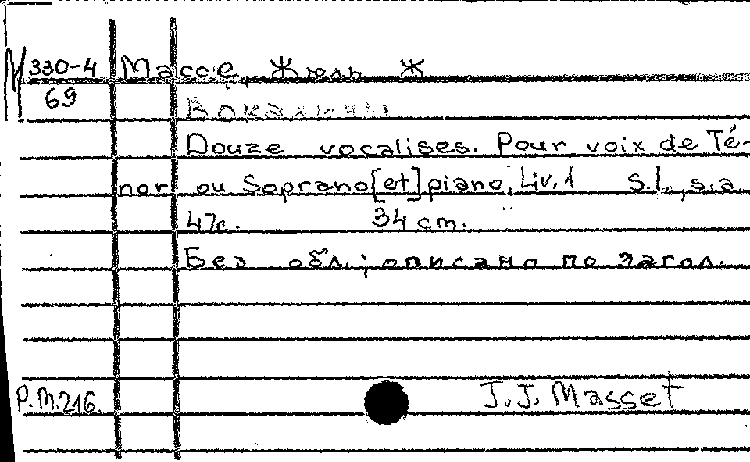 М 330-4 Массе, Жюль Ж
69
Вокализы
Douze vocalises. Pour voix de Té-
nor ou Soprano [et] piano. Liv. 1 s.l., s.a.
47с. 34 cm.
Без обл.; описано по загол.
P.M.216. J.J. Masset